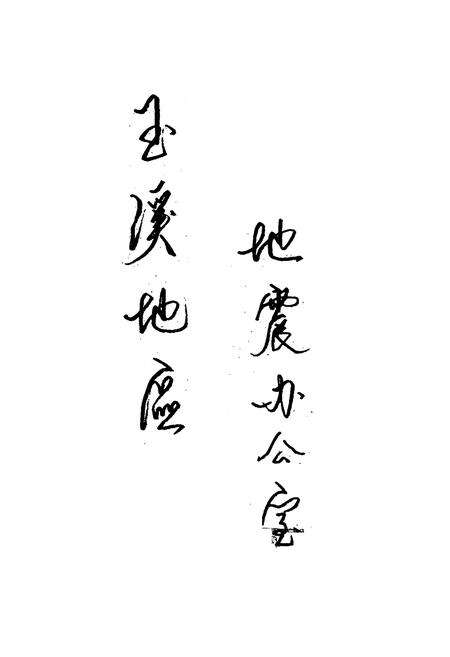 玉溪地區
地震办公室